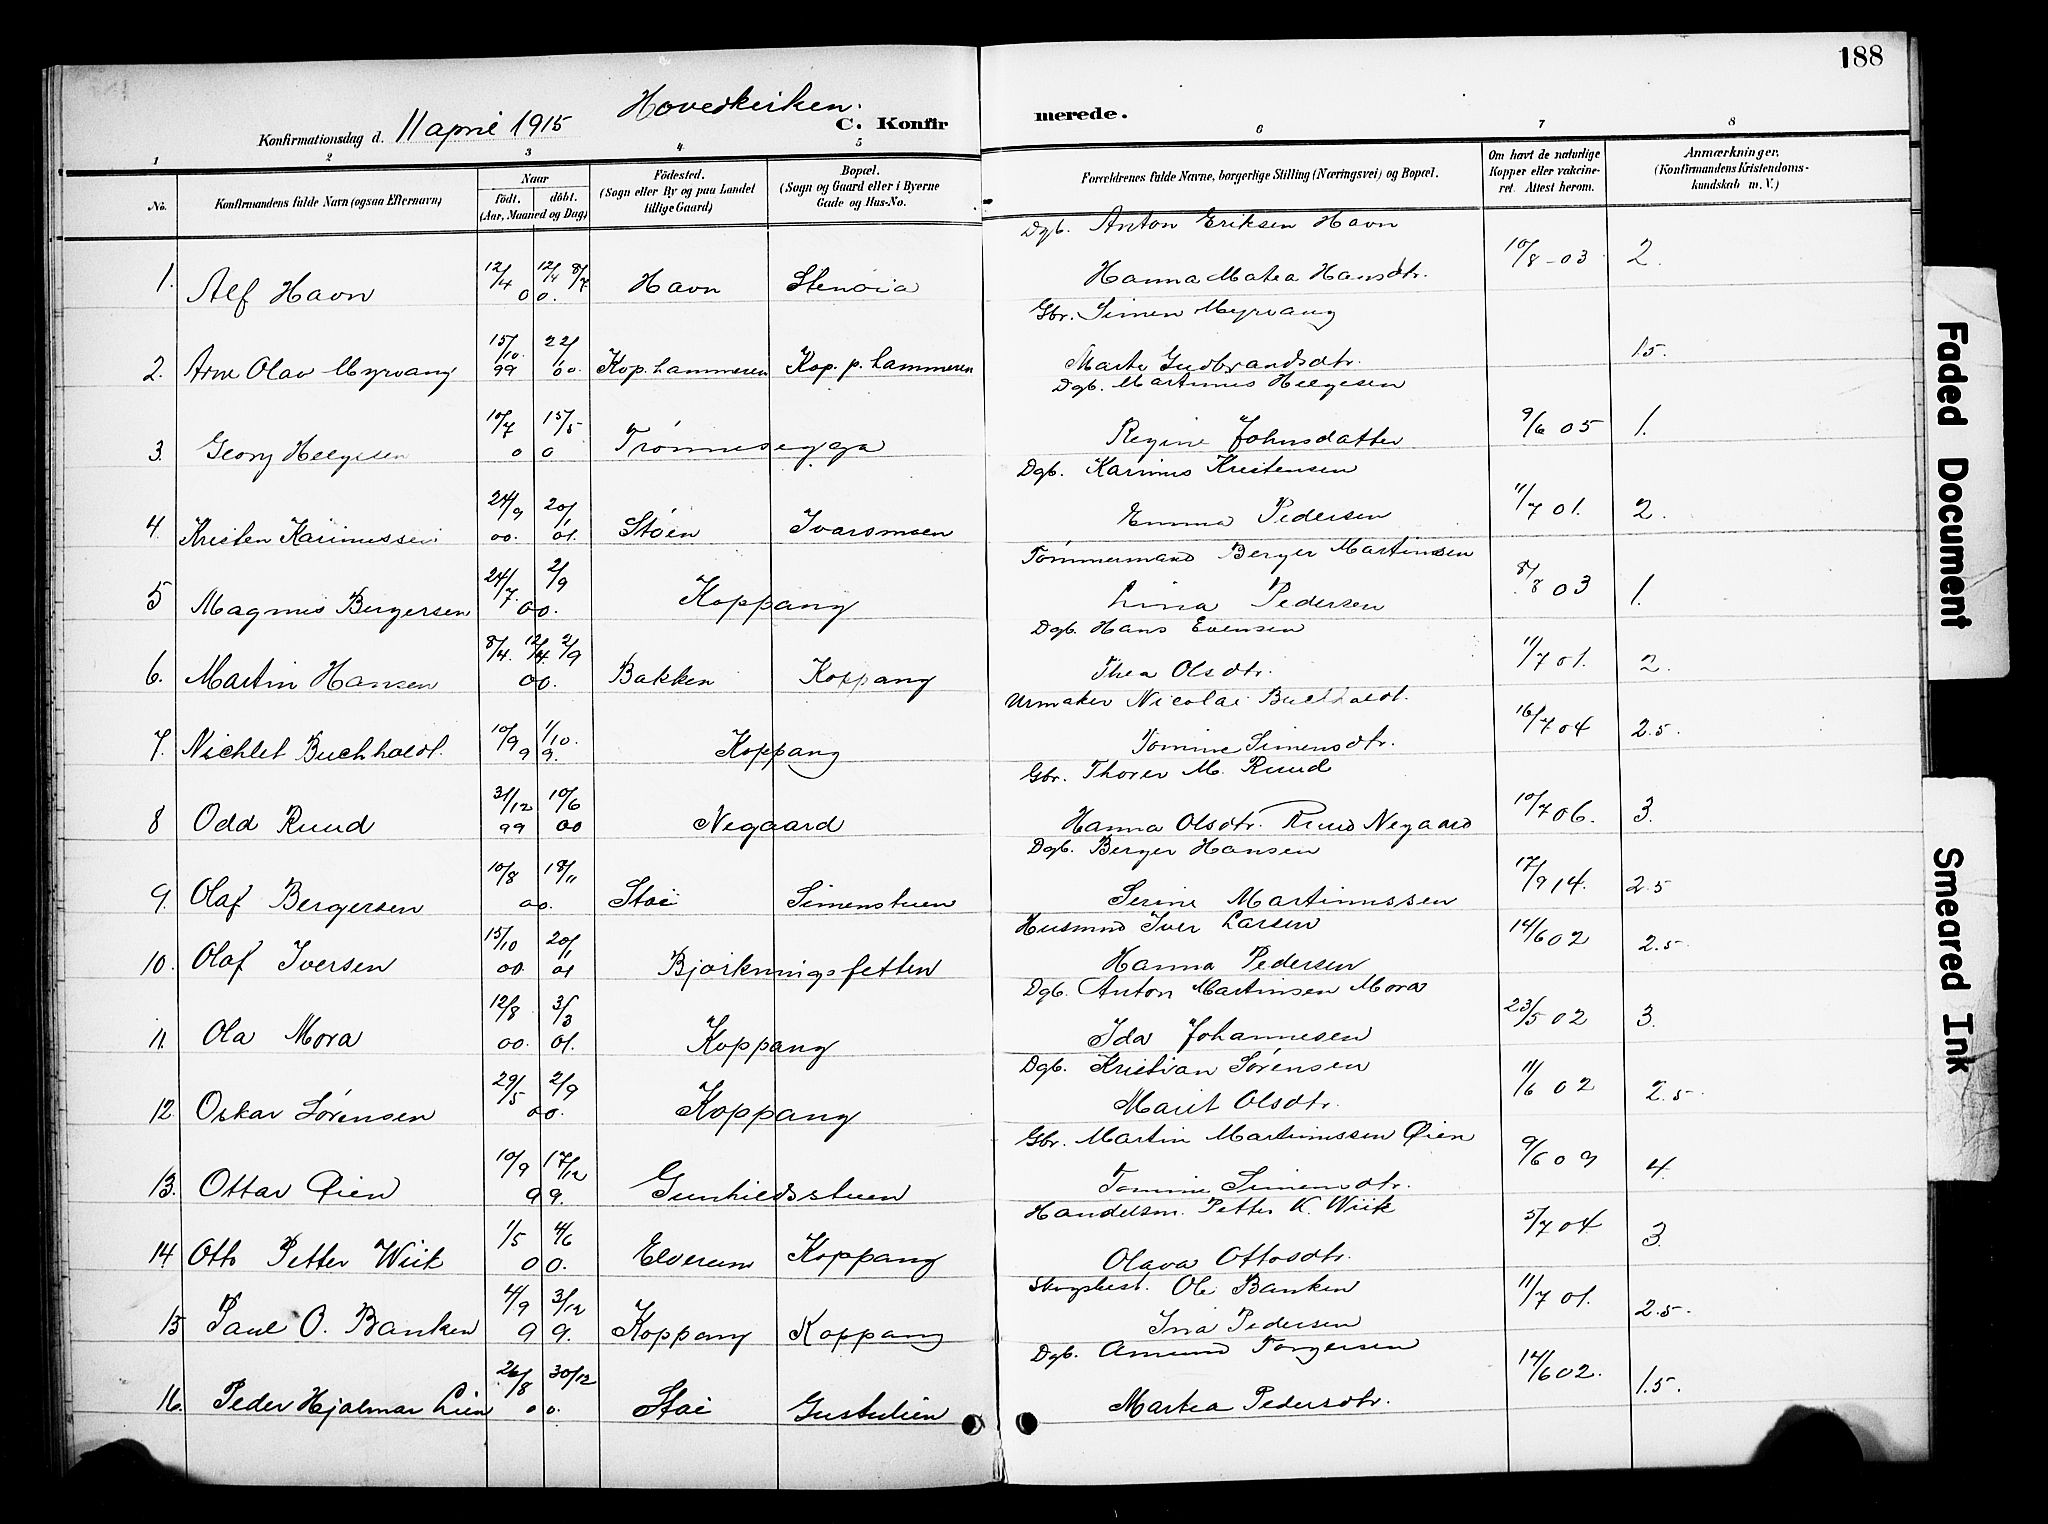 188
Hovedkirken.
Konfirmationsdag d. 11 april 1915
C. Konfir merede.
1 2 3 4 5 6 7 8
No. Konfirmandens fulde Navn (ogsaa Efternavn) Naar født. døbt. (Aar, Maaned og Dag) Fødested. (Sogn eller By og paa Landet tillige Gaard) Bopæl. (Sogn og Gaard eller i Byerne Gade og Hus-No. Forældrenes fulde Navne, borgerlige Stilling (Næringsvei) og Bopæl. Om havt de naturlige Kopper eller vakcineret. Attest herom. Anmærkninger. (Konfirmandens Kristendomskundskab m. V.)
Dgb. Anton Eriksen Havn
1. Alf Havn 12/4 12/4 8/7 00. Havn Stenøia Hanna Matea Hansdtr. 10/8-03 2.
Gbr. Simen Myrvang
2. Arne Olav Myrvang 15/10. 99 22/1 00. Kop.hammeren Kop. p. hammeren Marte Gudbrandsdtr. 1.5.
Dgb. Martinus Helgesen
3. Georg Helgesen 10/7 15/5 0 0 Trønnesegga Regine Johnsdatter 9/6 05 1.
Dgb. Karinus Kristensen
4. Kristen Karinussen 24/9 00. 20/1 01. Støen Ivarsmoen Emma Pedersen 11/7 01. 2.
Tømmermand Berger Martinsen
5 Magnus Bergersen 24/7. 2/9 00. Koppang Lina Pedersen 8/8 03 1.
Dgb. Hans Evensen
6. Martin Hansen 8/4. 12/4. 2/9 00. Bakken Koppang Thea Olsdtr. 11/7 01. 2.
Urmaker Nicolai Buchholdt.
7. Nichlet Buchholdt. 10/9 1/10. 99. Koppang Tomine Simensdtr. 16/7 04 2.5.
Gbr. Thorer M. Ruud
8 Odd Ruud 31/12 99 10/6 00 Negaard Hanna Olsdtr. Ruud Negaard 10/7 06. 3.
Dgb. Berger Hansen
9. Olaf Bergersen 10/8 18/11 00. Stai Simenstuen Serine Martinussen 17/9 14. 2.5
Husmnd Iver Larsen
10. Olaf Iversen 15/10 00. 20/1 01 Bjørkningsfetten Hanna Pedersen 14/6 02 2.5.
Dgb. Anton Martinsen Mora
11. Ola Mora 12/8 00. 3/3 01. Koppang Ida Johannesen 23/5 02 3.
Dgb. Kristian Sørensen
12. Oskar Sørensen 29/5 2/9 00. Koppang Marit Olsdtr. 11/6 02 2.5.
Gbr. Martin Martinussen Øien
13. Ottar Øien 10/9 17/12 99. Gunhildsstuen Tomine Simensdtr. 9/6 09 4.
Handelsm. Petter K. Wiik
14. Otto Petter Wiik 1/5 4/6 00. Elverum Koppang Olava Ottosdtr. 5/7 04. 3.
Skogbest. Ole Banken
15 Paul O. Banken 4/9 3/12 99. Koppang Koppang Ina Pedersen 11/7 01. 2.5.
Dgb. Amund Torgersen
16. Peder Hjalmar Lien 26/8 30/12 00. Stai Gustulien Martea Pedersdtr. 14/6 02. 1.5.
Faded Document
Smeared Ink